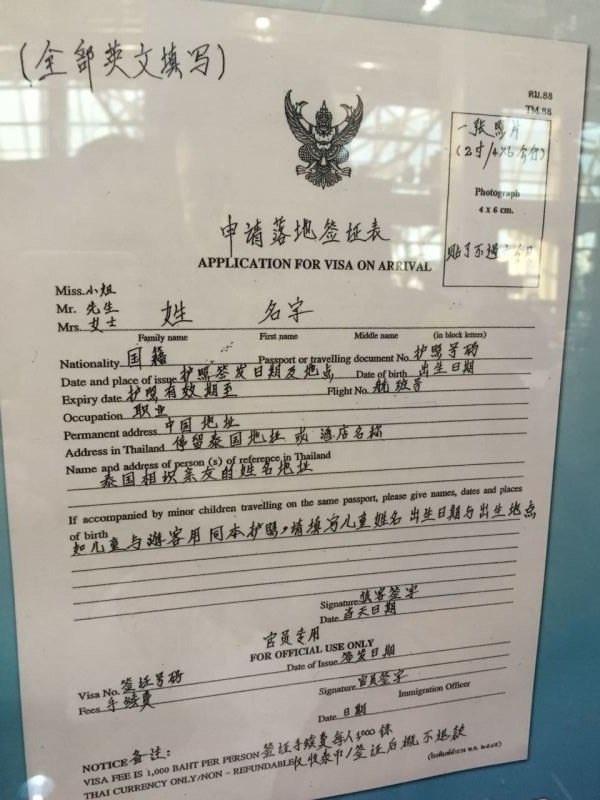 (全部英文填写)
ตม.88
TM.88
一张照片
(2寸/4X6公分)
Photograph
4 x 6 cm.
申请落地签证表
APPLICATION FOR VISA ON ARRIVAL
Miss. 小姐
Mr. 先生
Mrs. 女士 姓 名字
Family name First name Middle name (in block letters)
Nationality 国籍 Passport or travelling document No. 护照号码
Date and place of issue 护照签发日期及地点 Date of birth 出生日期
Expiry date 护照有效期至 Flight No. 航班号
Occupation 职业
Permanent address 中国地址
Address in Thailand 停留泰国地址 或 酒店名称
Name and address of person (s) of reference in Thailand
泰国相识亲友的姓名地址
If accompanied by minor children travelling on the same passport, please give names, dates and places
of birth
如儿童与游客用同本护照,请填写儿童姓名 出生日期与出生地点
Signature 旅客签字
Date 当天日期
官员专用
FOR OFFICIAL USE ONLY
Visa No. 签证号码 Date of Issue 签发日期
Fees 手续费 Signature 官员签字
Immigration Officer
Date 日期
NOTICE 备注:
VISA FEE IS 1,000 BAHT PER PERSON 签证手续费每人1000铢
THAI CURRENCY ONLY/NON - REFUNDABLE 仅收泰币/签证后概不退款